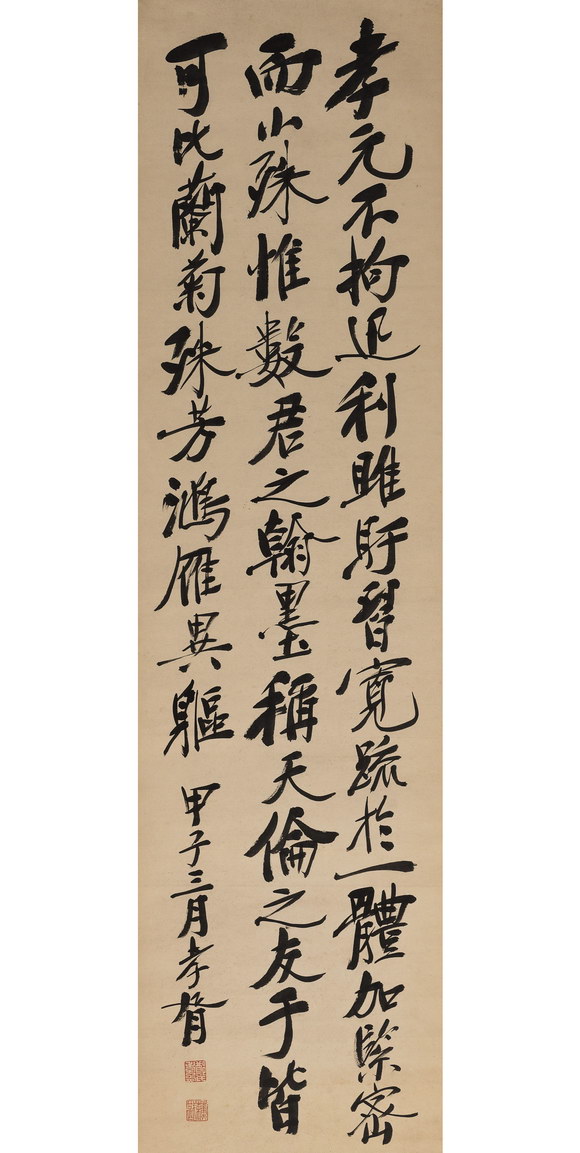 孝元不拘迅利睢盱習寬疏於一體加緊密
而小殊惟數君之翰墨稱天倫之友于皆
可比蘭菊殊芳鴻雁異軀
甲子三月孝胥